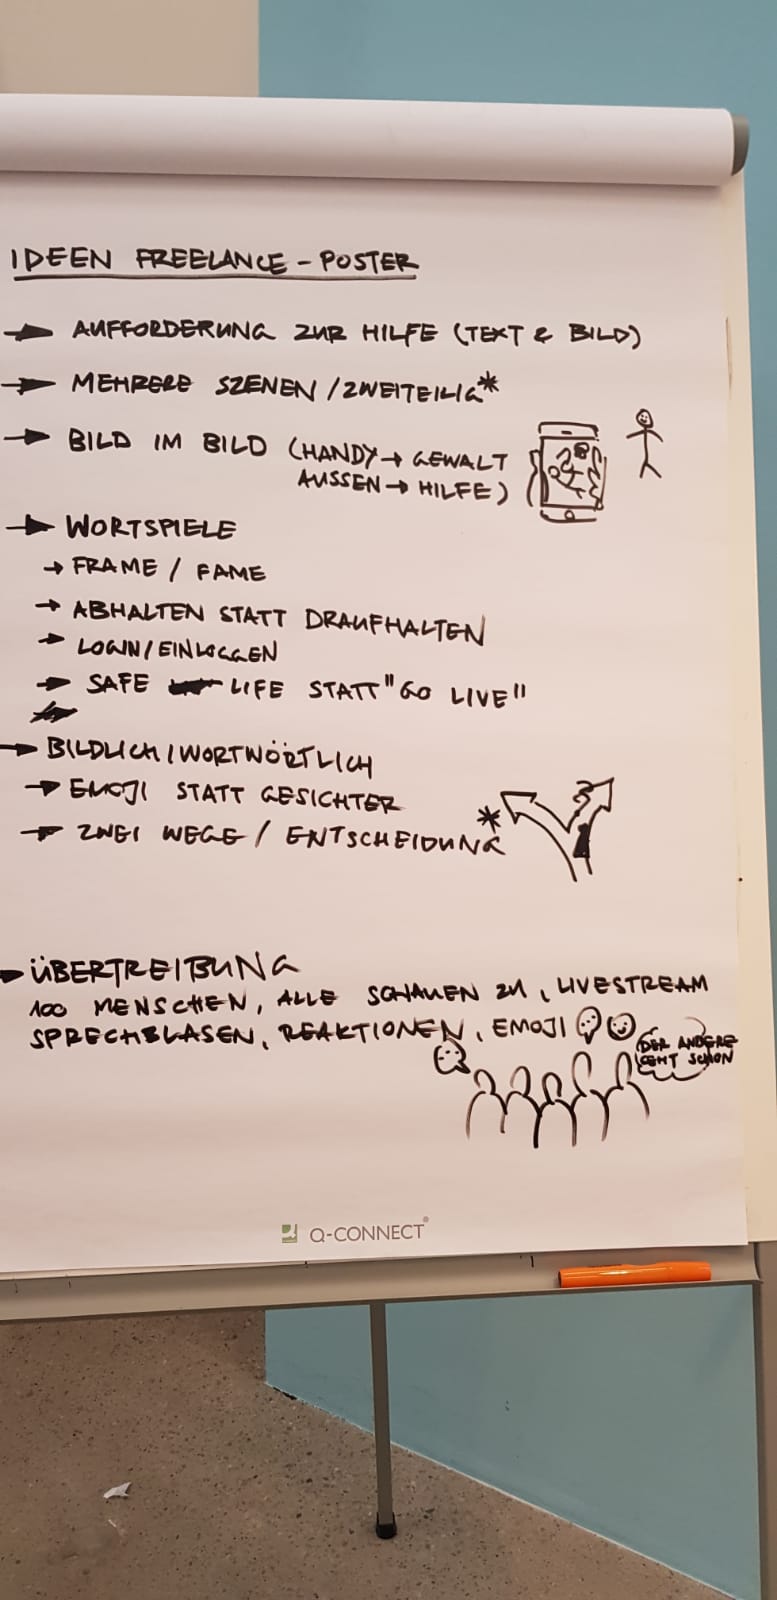 IDEEN FREELANCE - POSTER
→ AUFFORDERUNG ZUR HILFE (TEXT & BILD)
→ MEHRERE SZENEN / ZWEITEILIG*
→ BILD IM BILD (HANDY → GEWALT
AUSSEN → HILFE)
→ WORTSPIELE
→ FRAME / FAME
→ ABHALTEN STATT DRAUFHALTEN
→ LOGIN / EINLOGGEN
→ SAFE LIFE STATT "GO LIVE"
→ BILDLICH / WORTWÖRTLICH
→ EMOJI STATT GESICHTER
→ ZWEI WEGE / ENTSCHEIDUNG *
→ ÜBERTREIBUNG
100 MENSCHEN, ALLE SCHAUEN ZU, LIVESTREAM
SPRECHBLASEN, REAKTIONEN, EMOJI
DER ANDERE
GEHT SCHON
Q-CONNECT®